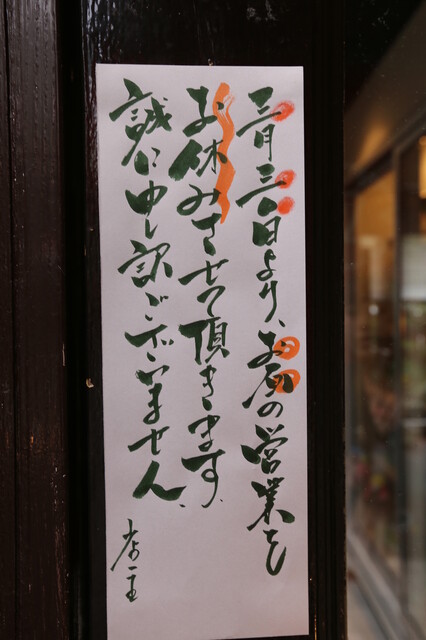 三月三〇日より、お昼の営業を
お休みさせて頂きます、
誠に申し訳ございません、
店主